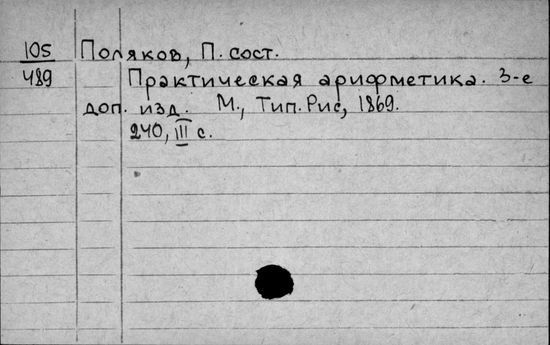 105 Поляков, П. сост.
489 Практическая арифметика. 3-е
доп. изд. М., Тип. Рис, 1869.
240, III с.